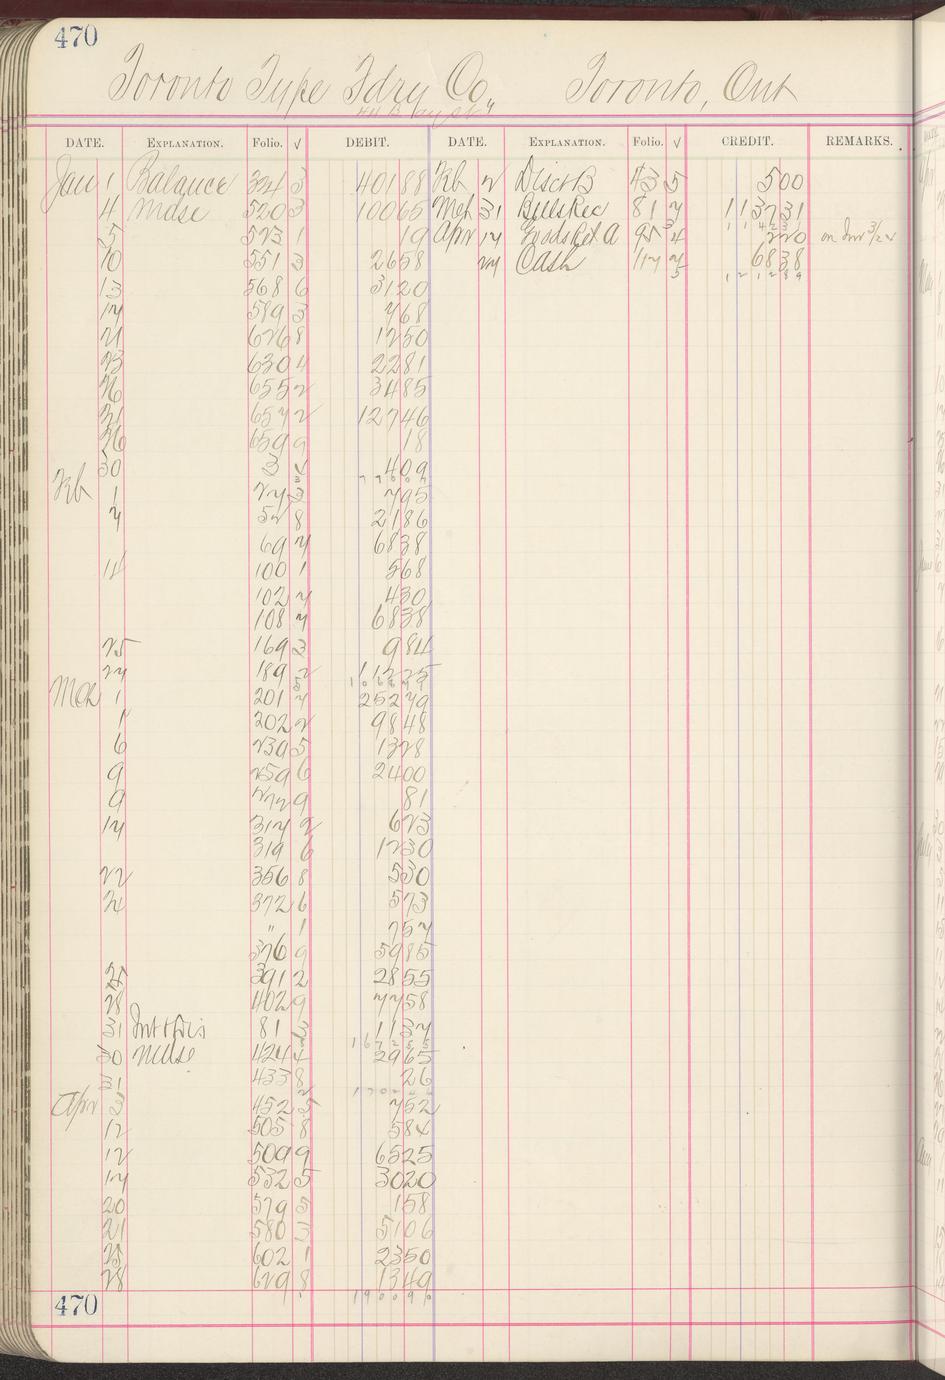 470
Toronto Type Fdry Co. Toronto, Ont
DATE. EXPLANATION. Folio. √ DEBIT. DATE. EXPLANATION. Folio. √ CREDIT. REMARKS.
Jan 1 Balance 324 3 401 88 Feb 2 Disct B 43 5 5 00
4 Mdse 520 3 100 65 Mch 31 Bills Rec 81 7 1137 31
5 523 1 19 Apr 14 Goods Ret A 95 4 2 20 on Inv 3/22
10 551 3 26 58 27 Cash 117 7 68 38
13 568 6 31 20
14 589 3 7 68
21 626 8 12 50
23 630 4 22 81
26 655 2 34 85
31 657 2 127 46
26 659 9 18
30 3 4 09
Feb 1 27 3 7 95
7 52 8 21 86
69 7 68 38
11 100 1 5 68
102 7 4 30
108 7 68 38
25 169 3 9 84
27 189 2 112 25
Mch 1 201 7 252 79
1 202 2 98 48
6 239 5 13 28
9 259 6 24 00
9 272 9 81
14 317 2 6 73
319 6 12 30
22 356 8 5 30
24 372 6 5 73
" 1 7 57
376 9 59 85
25 391 2 28 55
28 402 9 77 58
31 Int & Dis 81 3 11 37
30 Mdse 424 4 29 65
31 433 8 26
Apr 3 452 5 7 52
12 505 8 5 84
12 509 9 65 25
14 532 5 30 20
20 579 5 1 58
21 580 3 51 06
25 602 1 23 50
28 629 8 13 49
1900 90
470